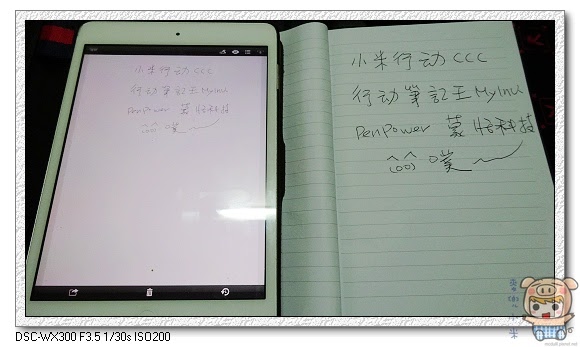 小米行动CCC
行动筆記王MyInk
PenPower 蒙恬科技
噗
小米行动CCC
行动筆記王MyInk
PenPower 蒙恬科技
噗
DSC-WX300 F3.5 1/30s ISO200